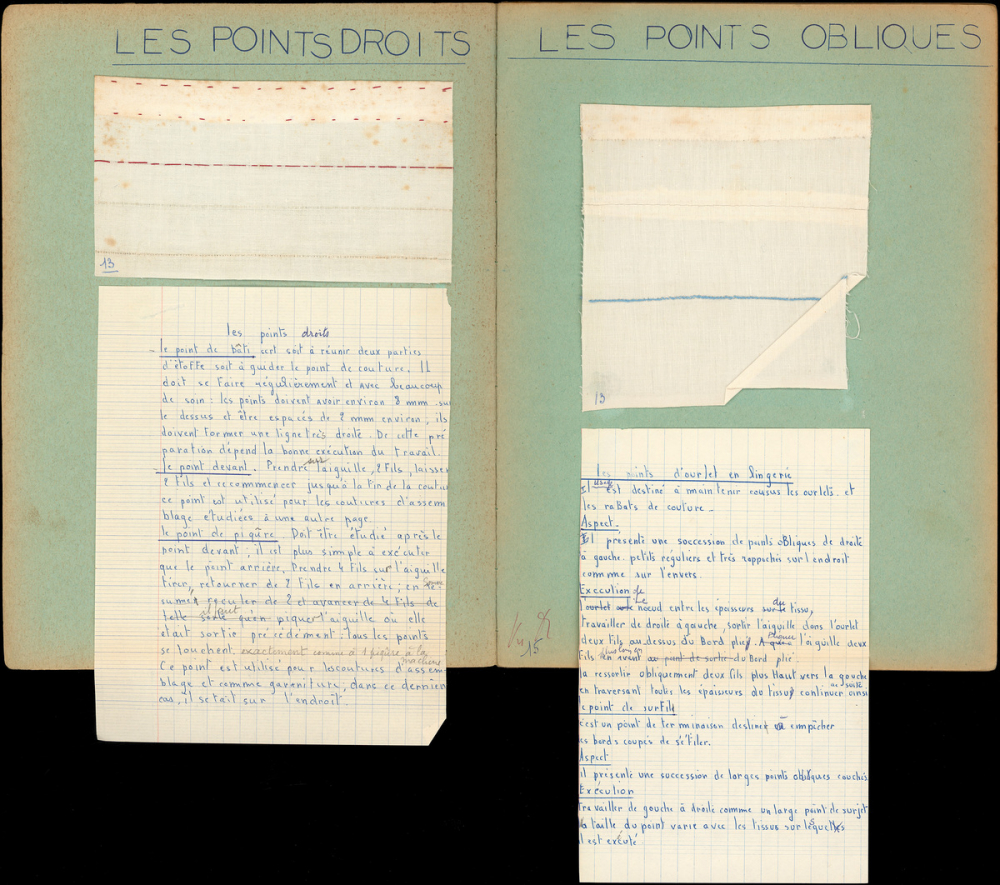 LES POINTS DROITS
13
les points droits
le point de bâti sert soit à réunir deux parties
d'étoffe soit à guider le point de couture. Il
doit se faire régulièrement et avec beaucoup
de soin : les points doivent avoir environ 8 mm sur
le dessus et être espacés de 2 mm environ, ils
doivent former une ligne très droite. De cette pré
paration dépend la bonne exécution du travail.
le point devant. Prendre sur l'aiguille, 2 fils, laisser
2 fils et recommencer jusqu'à la fin de la coutur
ce point est utilisé pour les coutures d'assem
blage étudiées à une autre page
le point de piqûre. Doit être étudié après le
point devant ; il est plus simple à exécutir
que le point arrière. Prendre 4 fils sur l'aiguille
tirer, retourner de 2 fils en arrière ; en ré-
sumé reculer de 2 et avancer de 4 fils de
telle sorte qu'en piquer l'aiguille où elle
était sortie précédement : tous les points
se touchent. exactement comme à 1 piqûre à la
machine
Ce point est utilisé pour les coutures d'assem
blage et comme garniture, dans ce dernier
cas, il se fait sur l'endroit.
LES POINTS OBLIQUES
13
15
les points d'ourlet en lingerie
Il est destiné à maintenir cousus les ourlets et
les rabats de couture -
Aspect.
Il présente une succession de points obliques de droite
à gauche. petits réguliers et très rapprochés sur l'endroit
comme sur l'envers.
Execution
l'ourlet noeud entre les épaisseurs du tissu,
travailler de droite à gauche, sortir l'aiguille dans l'ourlet
deux fils au dessus du Bord plié. l'aiguille deux
fils en avant au point de sortie du Bord plié
la ressortir obliquement deux fils plus Haut vers la gauche
en traversant toutes les épaisseurs du tissu continuer ainsi
de suite
le point de surfil
c'est un point de terminaison destiné à empêcher
les bords coupés de s'éfiler.
Aspect
il présente une succession de larges points obliques couchés
Exécution
travailler de gauche à droite comme un large point de surjet
la taille du point varie avec les tissus sur lesquels
il est exécuté